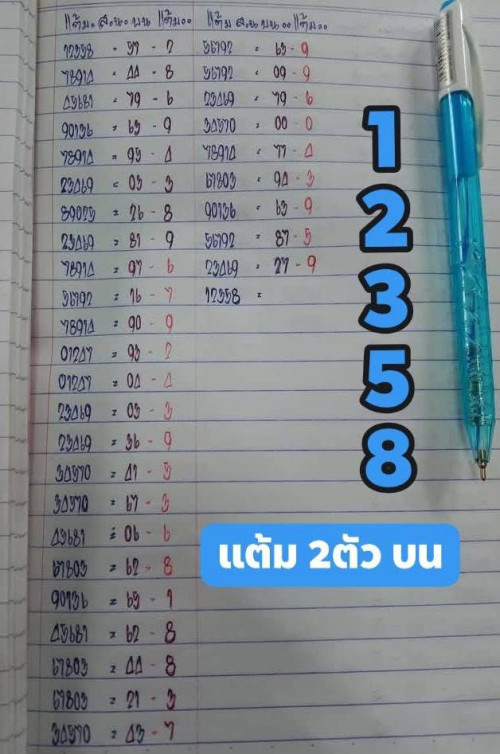 แต้ม
บน
แต้มออก
12358 = 37 - 2
78914 = 44 - 8
45681 = 79 - 6
90136 = 63 - 9
78914 = 93 - 4
23469 = 03 - 3
89023 = 26 - 8
23469 = 81 - 9
78914 = 97 - 6
56792 = 16 - 7
78914 = 90 - 9
01247 = 93 - 2
01247 = 04 - 4
23469 = 03 - 3
23469 = 36 - 9
34570 = 41 - 5
34570 = 67 - 3
45681 = 06 - 6
67803 = 62 - 8
90136 = 65 - 1
45681 = 62 - 8
67803 = 44 - 8
67803 = 21 - 3
34570 = 43 - 7
แต้ม
บน
แต้มออก
56792 = 63 - 9
56792 = 09 - 9
23469 = 79 - 6
34570 = 00 - 0
78914 = 77 - 4
67803 = 94 - 3
90136 = 63 - 9
56792 = 87 - 5
23469 = 27 - 9
12358 =
1
2
3
5
8
แต้ม 2ตัว บน